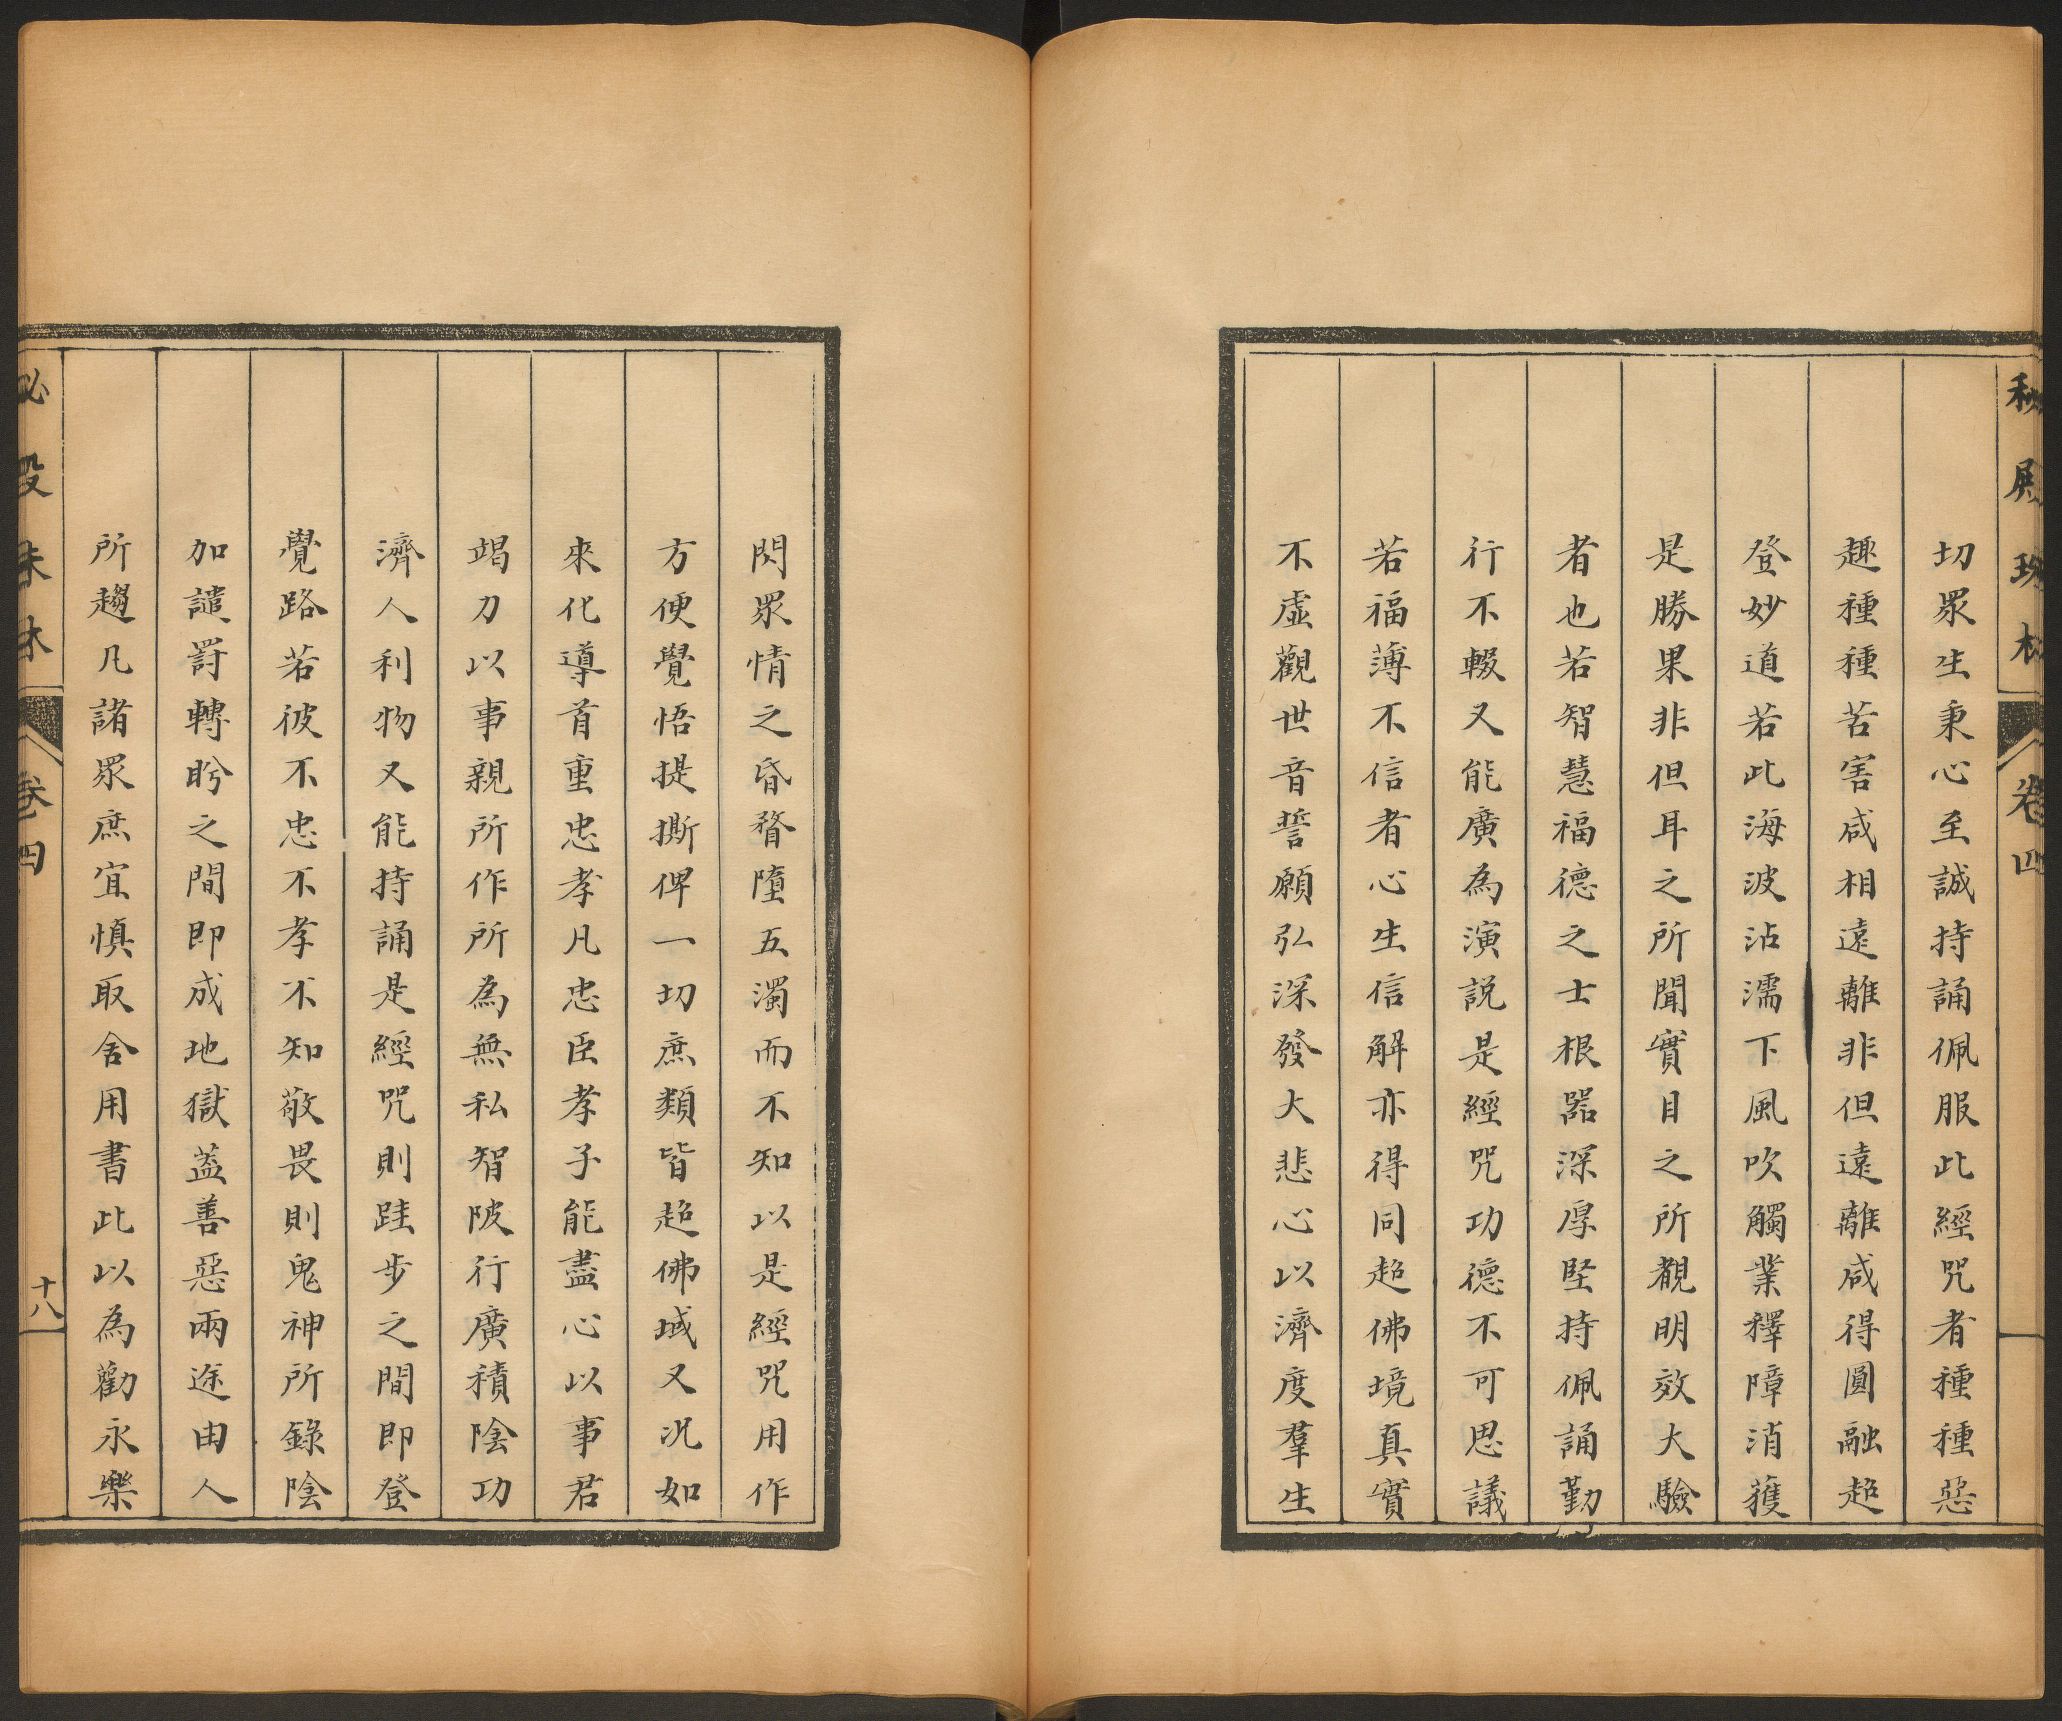 切眾生秉心至誠持誦佩服此經咒者種種惡
趣種種苦害咸相遠離非但遠離咸得圓融超
登妙道若此海波沾濡下風吹觸業釋障消獲
是勝果非但耳之所聞實目之所覩明效大驗
者也若智慧福德之士根器深厚堅持佩誦勤
行不輟又能廣為演説是經咒功德不可思議
若福薄不信者心生信解亦得同超佛境真實
不虛觀世音誓願弘深發大悲心以濟度羣生
閔眾情之昏瞀墮五濁而不知以是經咒用作
方便覺悟提撕俾一切庶類皆超佛域又況如
來化導首重忠孝凡忠臣孝子能盡心以事君
竭力以事親所作所為無私智陂行廣積陰功
濟人利物又能持誦是經咒則跬步之間即登
覺路若彼不忠不孝不知敬畏則鬼神所錄陰
加譴罸轉盻之間即成地獄盖善惡兩途由人
所趨凡諸眾庶宜慎取舍用書此以為勸永樂
秘殿珠林 卷四 十八